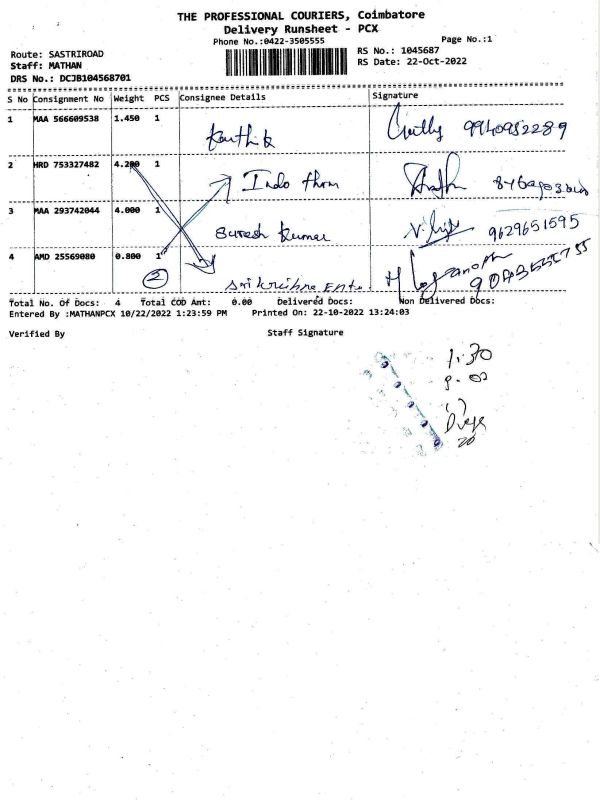 THE PROFESSIONAL COURIERS, Coimbatore
Delivery Runsheet - PCX
Phone No.:0422-3505555
Page No.:1
Route: SASTRIROAD
Staff: MATHAN
DRS No.: DCJB104568701
RS No.: 1045687
RS Date: 22-Oct-2022
S No Consignment No Weight PCS Consignee Details Signature
1 MAA 566609538 1.450 1 Karthik 9940952289
2 HRD 753327482 4.200 1 Indo thom
3 MAA 293742044 4.000 1 Suresh Kumar 9629651595
4 AMD 25569080 0.800 1
2 Sri krishna Ente
Total No. Of Docs: 4 Total COD Amt: 0.00 Delivered Docs: Non Delivered Docs:
Entered By :MATHANPCX 10/22/2022 1:23:59 PM Printed On: 22-10-2022 13:24:03
Verified By Staff Signature
1.30